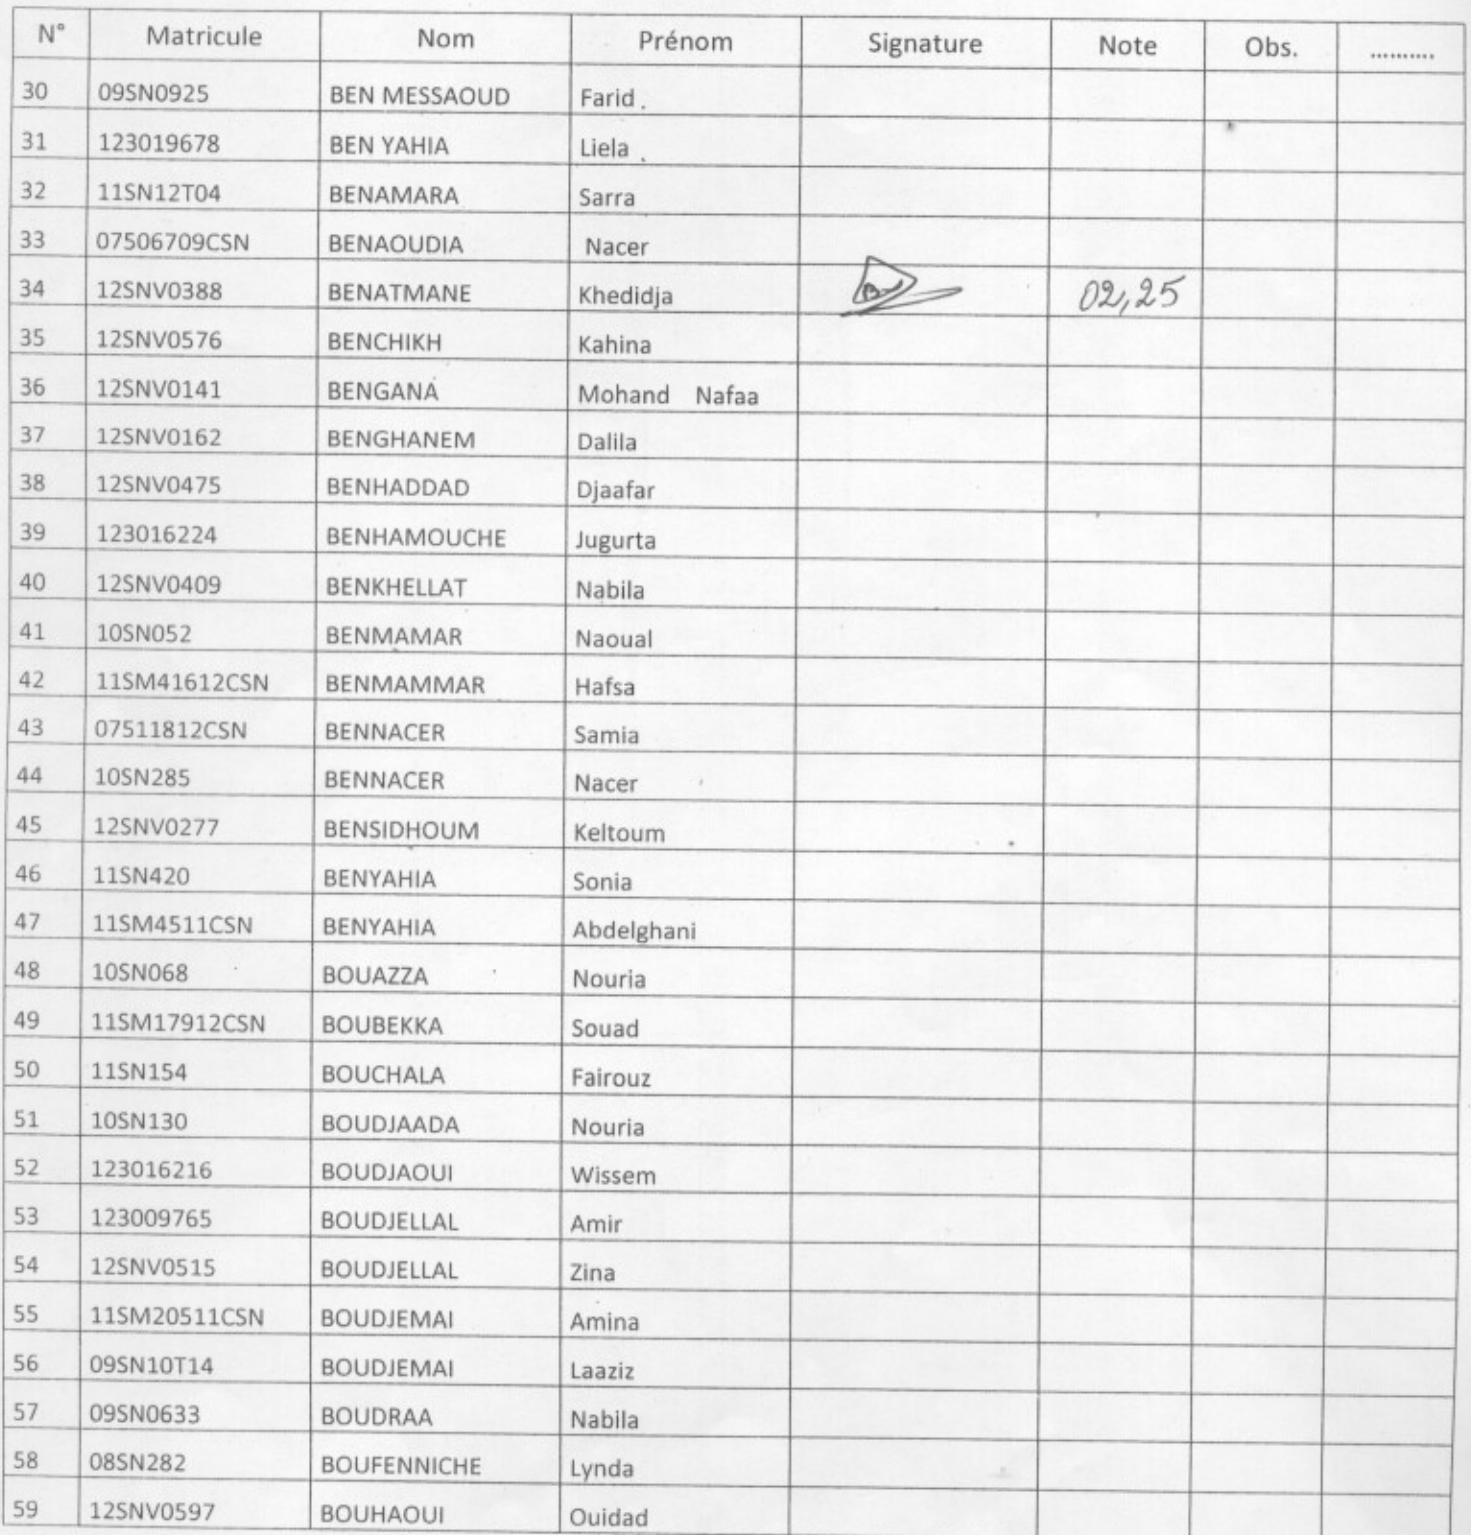 N° Matricule Nom Prénom Signature Note Obs. ..........
30 09SN0925 BEN MESSAOUD Farid
31 123019678 BEN YAHIA Liela
32 11SN12T04 BENAMARA Sarra
33 07506709CSN BENAOUDIA Nacer
34 12SNV0388 BENATMANE Khedidja 02,25
35 12SNV0576 BENCHIKH Kahina
36 12SNV0141 BENGANA Mohand Nafaa
37 12SNV0162 BENGHANEM Dalila
38 12SNV0475 BENHADDAD Djaafar
39 123016224 BENHAMOUCHE Jugurta
40 12SNV0409 BENKHELLAT Nabila
41 10SN052 BENMAMAR Naoual
42 11SM41612CSN BENMAMMAR Hafsa
43 07511812CSN BENNACER Samia
44 10SN285 BENNACER Nacer
45 12SNV0277 BENSIDHOUM Keltoum
46 11SN420 BENYAHIA Sonia
47 11SM4511CSN BENYAHIA Abdelghani
48 10SN068 BOUAZZA Nouria
49 11SM17912CSN BOUBEKKA Souad
50 11SN154 BOUCHALA Fairouz
51 10SN130 BOUDJAADA Nouria
52 123016216 BOUDJAOUI Wissem
53 123009765 BOUDJELLAL Amir
54 12SNV0515 BOUDJELLAL Zina
55 11SM20511CSN BOUDJEMAI Amina
56 09SN10T14 BOUDJEMAI Laaziz
57 09SN0633 BOUDRAA Nabila
58 08SN282 BOUFENNICHE Lynda
59 12SNV0597 BOUHAOUI Ouidad